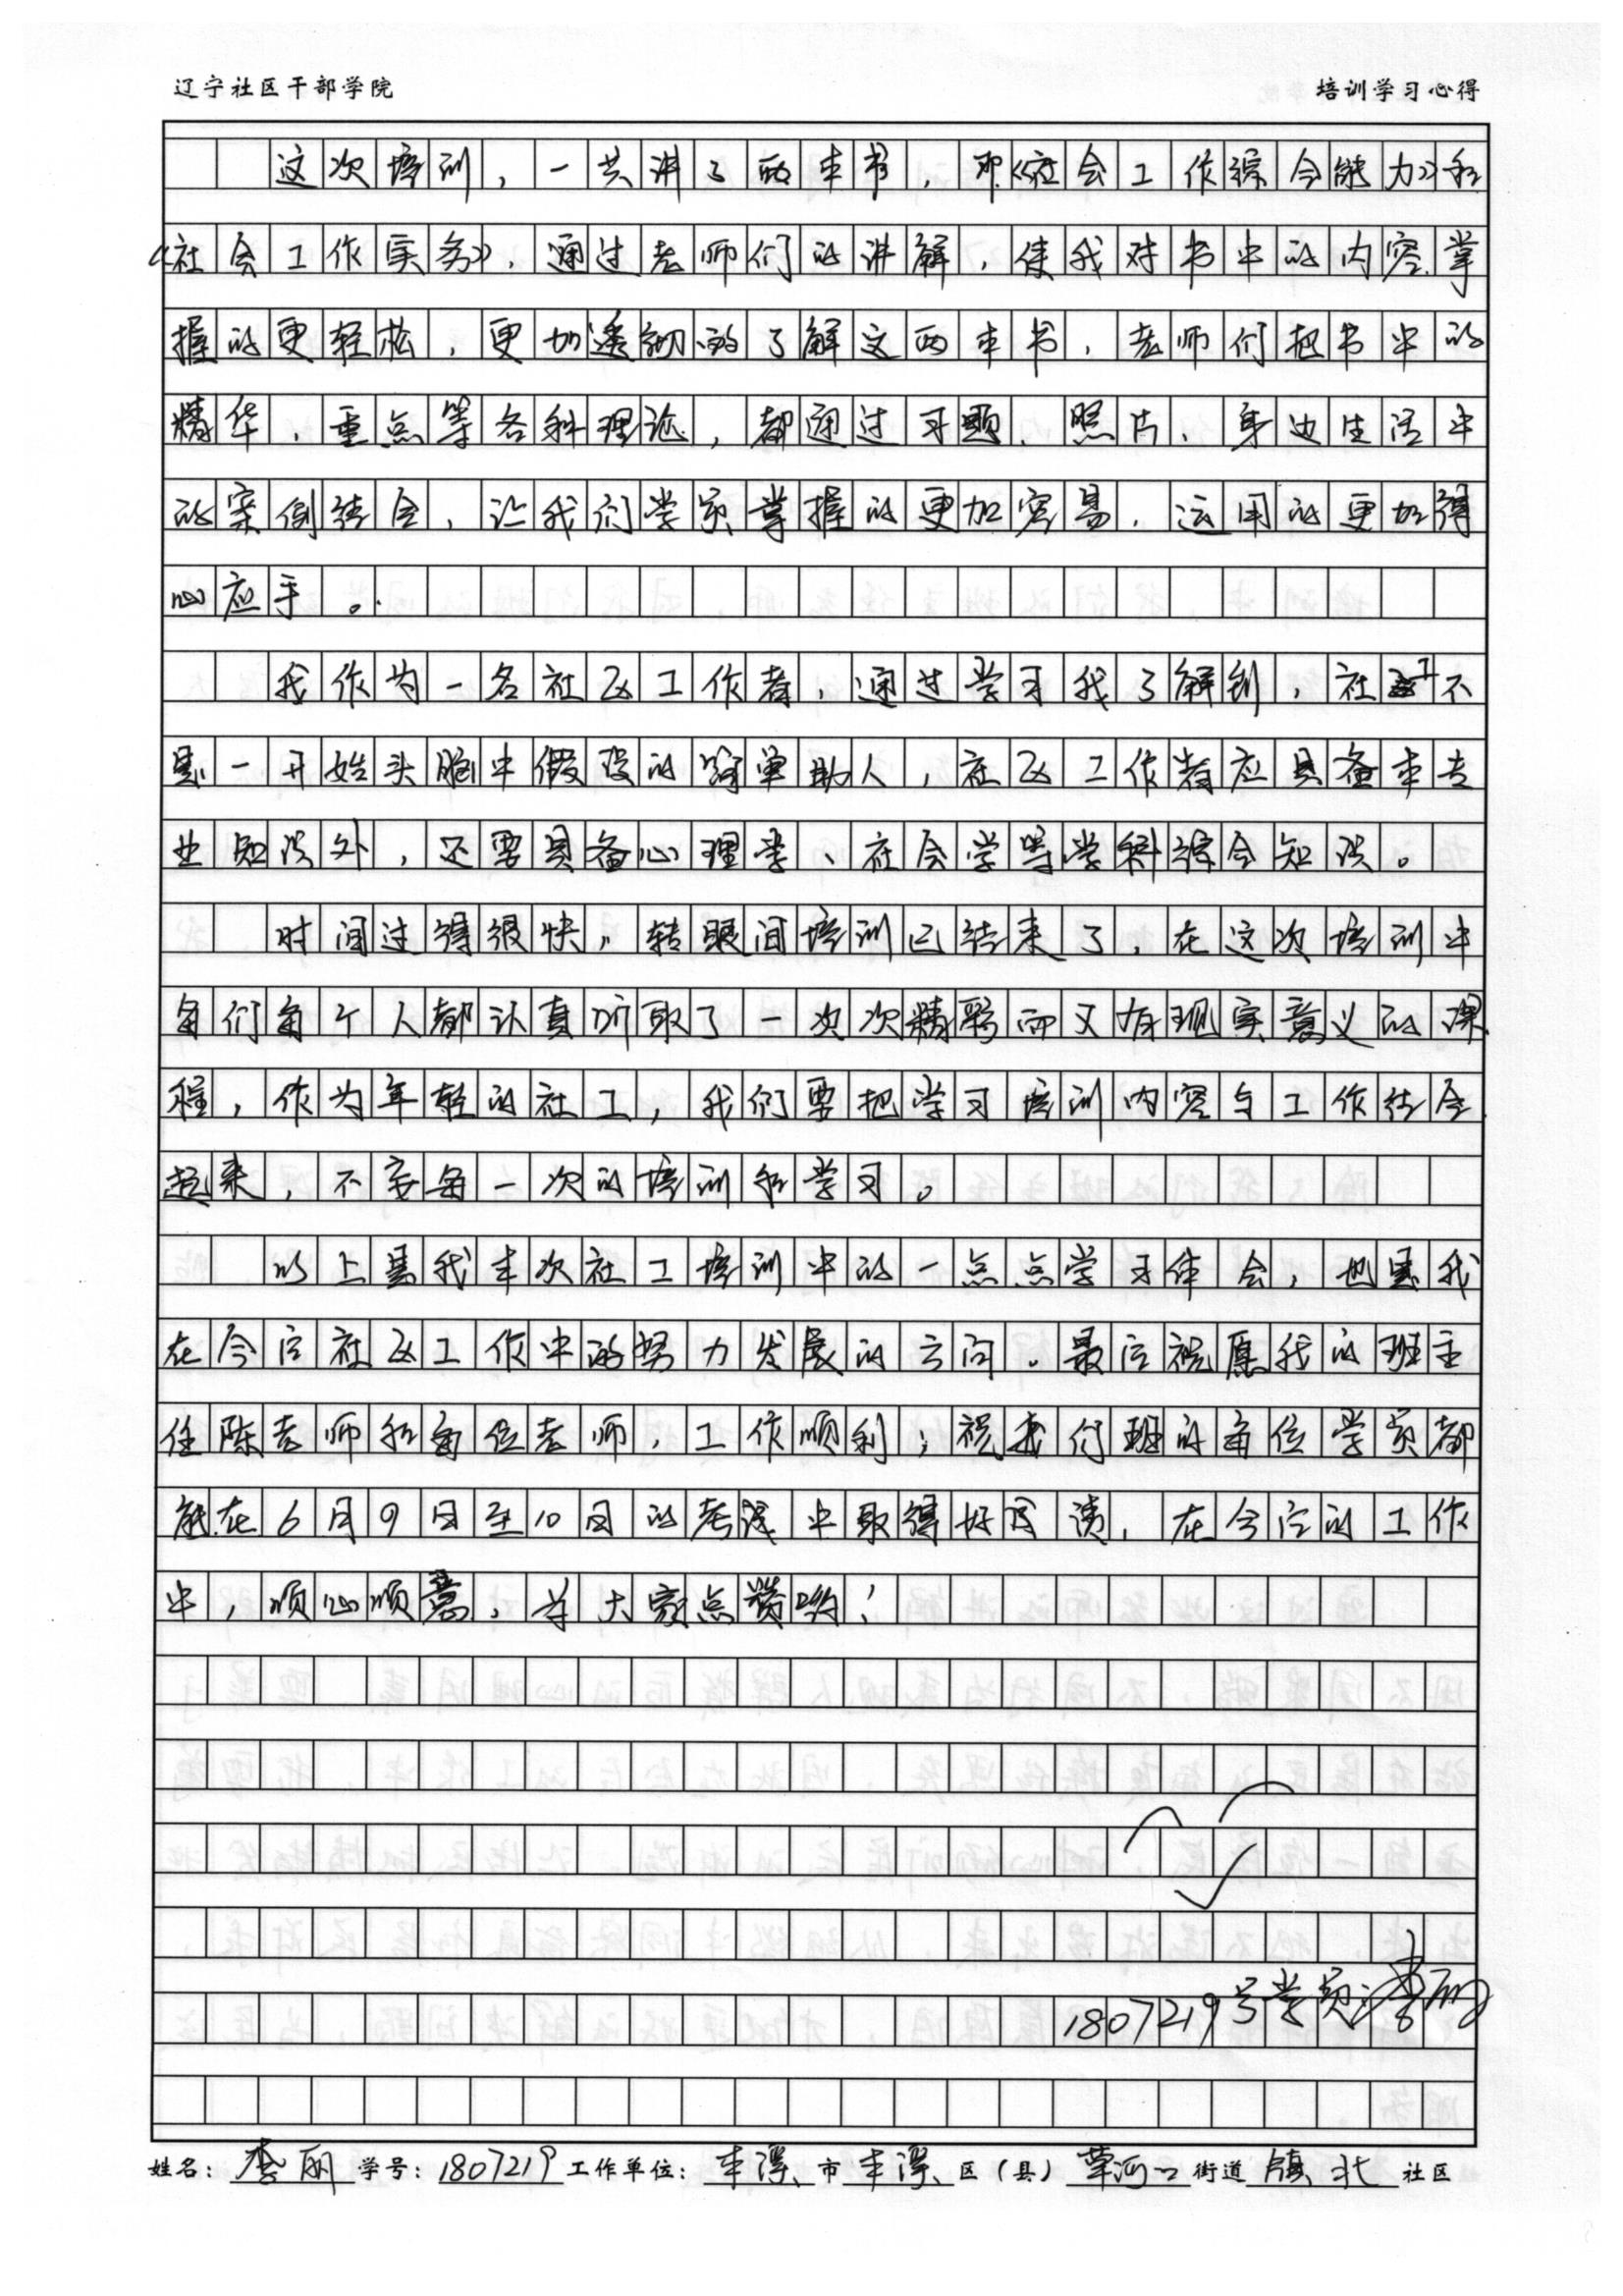 辽宁社区干部学院
培训学习心得
这次培训，一共讲了两本书，那《社会工作综合能力》和
《社会工作实务》，通过老师们的讲解，使我对书中的内容掌
握的更轻松，更加透彻的了解这两本书，老师们把书中的
精华、重点等各种理论，都通过习题、照片、身边生活中
的案例结合，让我们学员掌握的更加容易，运用的更加得
心应手。
我作为一名社区工作者，通过学习我了解到，社工不
是一开始头脑中假设的简单助人，社区工作者应具备本专
业知识外，还要具备心理学、社会学等学科综合知识。
时间过得很快，转眼间培训已结束了，在这次培训中
每们每个人都认真听取了一次次精彩而又有现实意义的课
程，作为年轻的社工，我们要把学习培训内容与工作结合
起来，不妄每一次的培训和学习。
以上是我本次社工培训中的一点点学习体会，也是我
在今后社区工作中的努力发展的方向。最后祝愿我的班主
任陈老师和每位老师，工作顺利；祝我们班的每位学员都
能在6月9日至10日的考试中取得好成绩，在今后的工作
中，顺心顺意，为大家点赞哟！
1807219号学员：李丽
姓名：李丽 学号：1807219 工作单位：本溪市本溪区（县）草河口街道镇北社区